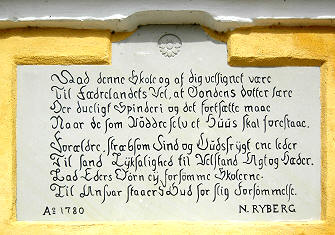 Gad denne Skole og af dig velsignet være
Til Fædrelandets Vel, at Bondens dotter lære
Der dueligt Spinderi og det fortsætte maae
Naar de som Møddre selv et Huus skal forestaae.
Forældre, stræb som Sind og Gudsfrygt ene leder
Til sand Lyksalighed til Velstand Agt og Hæder.
Lad Eders Børn ey forsømme Skolerne.
Til Ansvar staaer I Gud for slig Forsømmelse.
A° 1780 N. RYBERG